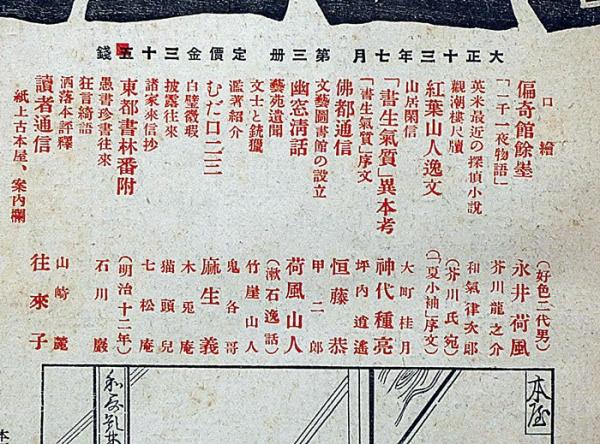 大正十三年七月 第三册 定價金三十五錢
口繪 (好色二代男)
偏奇館餘墨 永井荷風
「一千一夜物語」 芥川龍之介
英米最近の探偵小說 和氣律次郎
觀潮樓尺牘 (芥川氏宛)
紅葉山人逸文 (「夏小袖」序文)
山居閑信 大町桂月
「書生氣質」異本考 神代種亮
「書生氣質」序文 坪内逍遙
佛都通信 恒藤恭
文藝圖書館の設立 甲二郎
幽窓淸話 荷風山人
藝苑遺聞 (漱石逸話)
文士と銃獵 竹崖山人
濫著紹介 鬼各哥
むだ口二三 麻生義
白壁微瑕 木兎庵
披露往來 猫頭兒
諸家來信抄 七松庵
東都書林番附 (明治十二年)
愚書珍書往來 石川巖
狂言綺語
洒落本評釋 山崎麓
讀者通信 往來子
紙上古本屋、案内欄
本屋